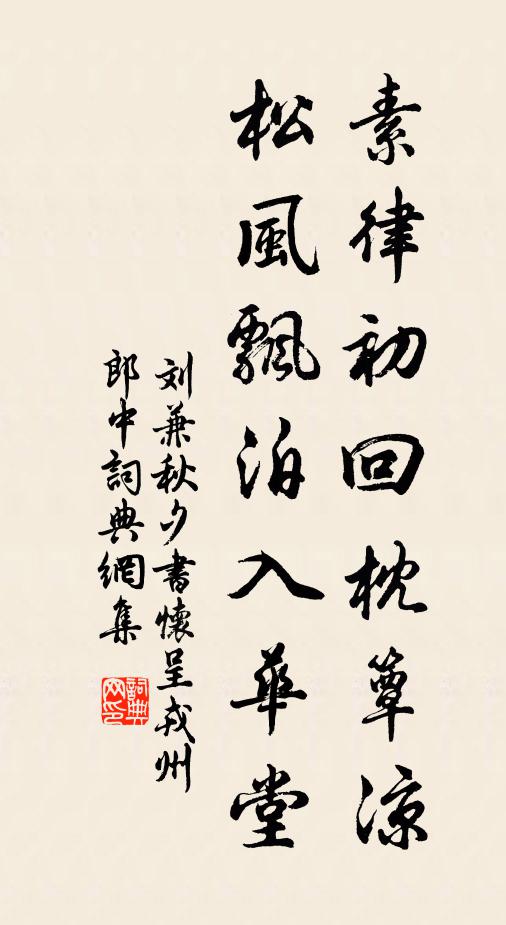 素律初回枕簟凉
松風飄泊入華堂
刘兼秋夕書懷呈戎州
郎中詞典網集
詞典网印